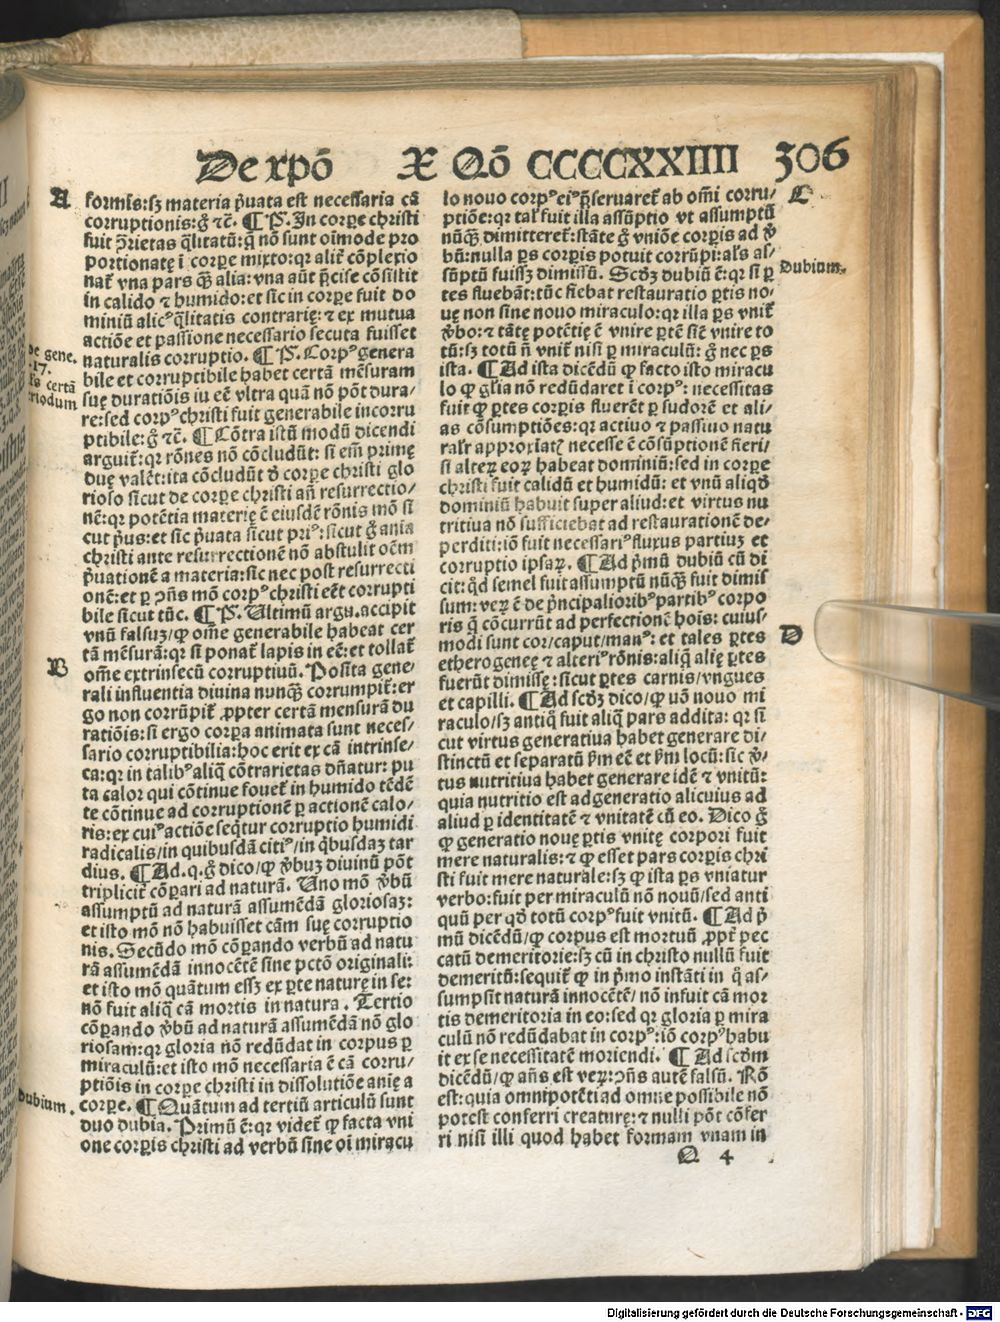 De xp̄o X Qō CCCCXXIIII 306
A
formis:sꝫ materia p̄uata est necessaria cā
corruptionis:g̊ ⁊c̄. ¶ P̄. In corꝑe christi
fuit ꝓrietas q̄litatū:q̄ nō sunt oīmode pro
portionatę ī corꝑe mixto:qꝛ alit̄ cōplexio
nat̄ vna pars qꝫ alia:vna aūt p̄cise cōsistit
in calido ⁊ humido:et sic in corꝑe fuit do
miniū alicꝰ q̄litatis contrarię:⁊ ex mutua
actiōe et passione necessario secuta fuisset
naturalis corruptio. ¶ P̄. Corpꝰ genera
bile et corruptibile habet certā mēsuram
suę duratiōis iu eē vltra quā nō pōt dura/
re:sed corpꝰ christi fuit generabile incorru
ptibile:g̊ ⁊c̄. ¶ Cōtra istū modū dicendi
arguit̄:qꝛ rōnes nō cōcludūt: si em̄ primę
duę valēt:ita cōcludūt d̄ corꝑe christi glo
rioso sicut de corꝑe christi añ resurrectio/
nē:qꝛ potētia materię ē eiusdē rōnis mō si
cut pꝰus:et sic p̄uata sicut priꝰ:sicut g̊ aīa
christi ante resurrectionē nō abstulit oēm
p̄uationē a materia:sic nec post resurrecti
onē:et ꝑ ꝯñs mō corpꝰ christi eēt corrupti
bile sicut tūc. ¶ P̄. Ultimū argu. accipit
vnū falsuꝫ/ꝙ om̄e generabile habeat cer
tā mēsurā:qꝛ si ponat̄ lapis in eē:et tollat̄
B
om̄e extrinsecū corruptiuū. Posita gene/
rali influentia diuina nunqꝫ corrumpit̄:er
go non corrūpit̄ ꝓpter certā mensurā du
ratiōis:si ergo corꝑa animata sunt neces/
sario corruptibilia:hoc erit ex cā intrinse/
ca:qꝛ in talibꝰ aliq̄ cōtrarietas dñatur: pu
ta calor qui cōtinue fouet̄ in humido tēdē
te cōtinue ad corruptionē ꝑ actionē calo/
ris:ex cuiꝰ actiōe seq̄tur corruptio humidi
radicalis/in quibusdā citiꝰ/in q̄busdaꝫ tar
dius. ¶ Ad .q. g̊ dico/ꝙ v̄buꝫ diuinū pōt
tripliciť cōꝑari ad naturā. Uno mō v̄bū
assumptū ad naturā assumēdā gloriosaꝫ:
et isto mō nō habuisset cām suę corruptio
nis. Secūdo mō cōꝑando verbū ad natu
rā assumēdā innocētē sine pctō originali:
et isto mō quātum essꝫ ex ꝑte naturę in se:
nō fuit aliq̄ cā mortis in natura. Tertio
cōꝑando v̄bū ad naturā assumēdā nō glo
riosam:qꝛ gloria nō redūdat in corpus ꝑ
miraculū:et isto mō necessaria ē cā corru/
ptiōis in corꝑe christi in dissolutiōe anię a
corꝑe. ¶ Quātum ad tertiū articulū sunt
Dubium.
duo dubia. Primū ē:qꝛ videt̄ ꝙ facta vni
one corꝑis christi ad verbū sine oī miracu
de gene.
.17.
certā
riodum
C
lo nouo corpꝰ eiꝰ p̄seruaret̄ ab omī corru/
ptiōe:qꝛ tal̄ fuit illa assūptio vt assumptū
nūqꝫ dimitteret̄:stāte g̊ vniōe corꝑis ad v̄
bū:nulla ꝑs corꝑis potuit corrūpi:al̄s as/
sūptū fuissꝫ dimissū. Scd̄ꝫ dubiū ē:qꝛ si ꝑ
Dubium.
tes fluebāt:tūc fiebat restauratio ꝑtis no/
uę non sine nouo miraculo:qꝛ illa ꝑs vnit̄
v̄bo:⁊ tātę potētię ē vnire ꝑtē sic̄ vnire to
tū:sꝫ totū ñ vnit̄ nisi ꝑ miraculū: g̊ nec ꝑs
ista. ¶ Ad ista dicēdū ꝙ facto isto miracu
lo ꝙ gl̄ia nō redūdaret ī corpꝰ: necessitas
fuit ꝙ ꝑtes corꝑis fluerēt ꝑ sudorē et ali/
as cōsumptiōes:qꝛ actiuo ⁊ passiuo natu
ral̄r approxiatꝭ necesse ē cōsūptionē fieri/
si alteꝝ eoꝝ habeat dominiū:sed in corꝑe
christi fuit calidū et humidū: et vnū aliqd̄
dominiū habuit super aliud:et virtus nu
tritiua nō sufficiebat ad restaurationē de/
perditi:iō fuit necessariꝰ fluxus partiuꝫ et
corruptio ipsaꝝ. ¶ Ad p̄mū dubiū cū di
cit:q̄d semel fuit assumptū nūqꝫ fuit dimis
sum:veꝝ ē de p̄ncipalioribꝰ partibꝰ corpo
ris q̄ cōcurrūt ad perfectionē hoīs: cuius/
D
modi sunt cor/caput/manꝰ: et tales ꝑtes
etherogeneę ⁊ alteriꝰ rōnis:aliq̄ alię ꝑtes
fuerūt dimissę:sicut ꝑtes carnis/vngues
et capilli. ¶ Ad scd̄ꝫ dico/ꝙ uō nouo mi
raculo/sꝫ antiq̄ fuit aliq̄ pars addita: qꝛ si
cut virtus generatiua habet generare di/
stinctū et separatū p̄m eē et p̄m locū:sic v̄/
tus nutritiua habet generare idē ⁊ vnitū:
quia nutritio est adgeneratio alicuius ad
aliud ꝑ identitatē ⁊ vnitatē cū eo. Dico g̊
ꝙ generatio nouę ꝑtis vnitę corpori fuit
mere naturalis:⁊ ꝙ esset pars corꝑis chri
sti fuit mere naturale:sꝫ ꝙ ista ꝑs vniatur
verbo:fuit per miraculū nō nouū/sed anti
quū per qd̄ totū corpꝰ fuit vnitū. ¶ Ad p̄
mū dicēdū/ꝙ corpus est mortuū ꝓpt̄ pec
catū demeritorie:sꝫ cū in christo nullū fuit
demeritū:sequit̄ ꝙ in p̄mo instāti in q̊ as/
sumpsit naturā innocētē/nō infuit cā mor
tis demeritoria in eo:sed qꝛ gloria ꝑ mira
culū nō redūdabat in corpꝰ:iō corpꝰ habu
it ex se necessitatē moriendi. ¶ Ad scd̄m
dicēdū/ꝙ añs est veꝝ:ꝯñs autē falsū. Rō
est:quia omnipotēti ad omne possibile nō
potest conferri creaturę:⁊ nulli pōt cōfer
ri nisi illi quod habet formam vnam in
Q 4
Digitalisierung gefördert durch die Deutsche Forschungsgemeinschaft - DFG